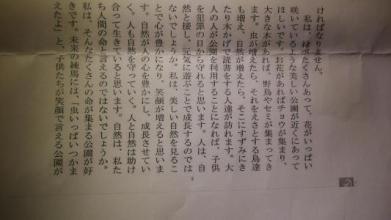 ければなりません。
私は、緑がたくさんあって、花がいっぱい
咲いているような美しい公園が近くにあって
ほしいです。お花があればチョウが集まり、
大きな木があれば、野鳥やセミが集まってき
ます。虫が増えたら、それをえさとする鳥達
も増え、自然が増えたら、そこにすずみにき
たり木かげで読書をする人達が訪れます。大
人の人が公園を利用することになれば、子供
を犯罪の目から守れると思います。人は、自
然と接し、元気に遊ぶことで成長するのでは
ないでしょうか。私は、美しい自然を見るこ
とで心が豊かになり、笑顔が増えると思いま
す。自然が人の心を豊かにし、成長させてい
く。人も自然を守っていく。人と自然は助け
合って生きていると思います。自然は、私た
ち人間の命と言えるのではないでしょうか。
私は、そんなたくさんの命が集まる公園が好
きです。未来の練馬には、「虫いっぱいつかま
えたよ」と、子供たちが笑顔で言える公園が